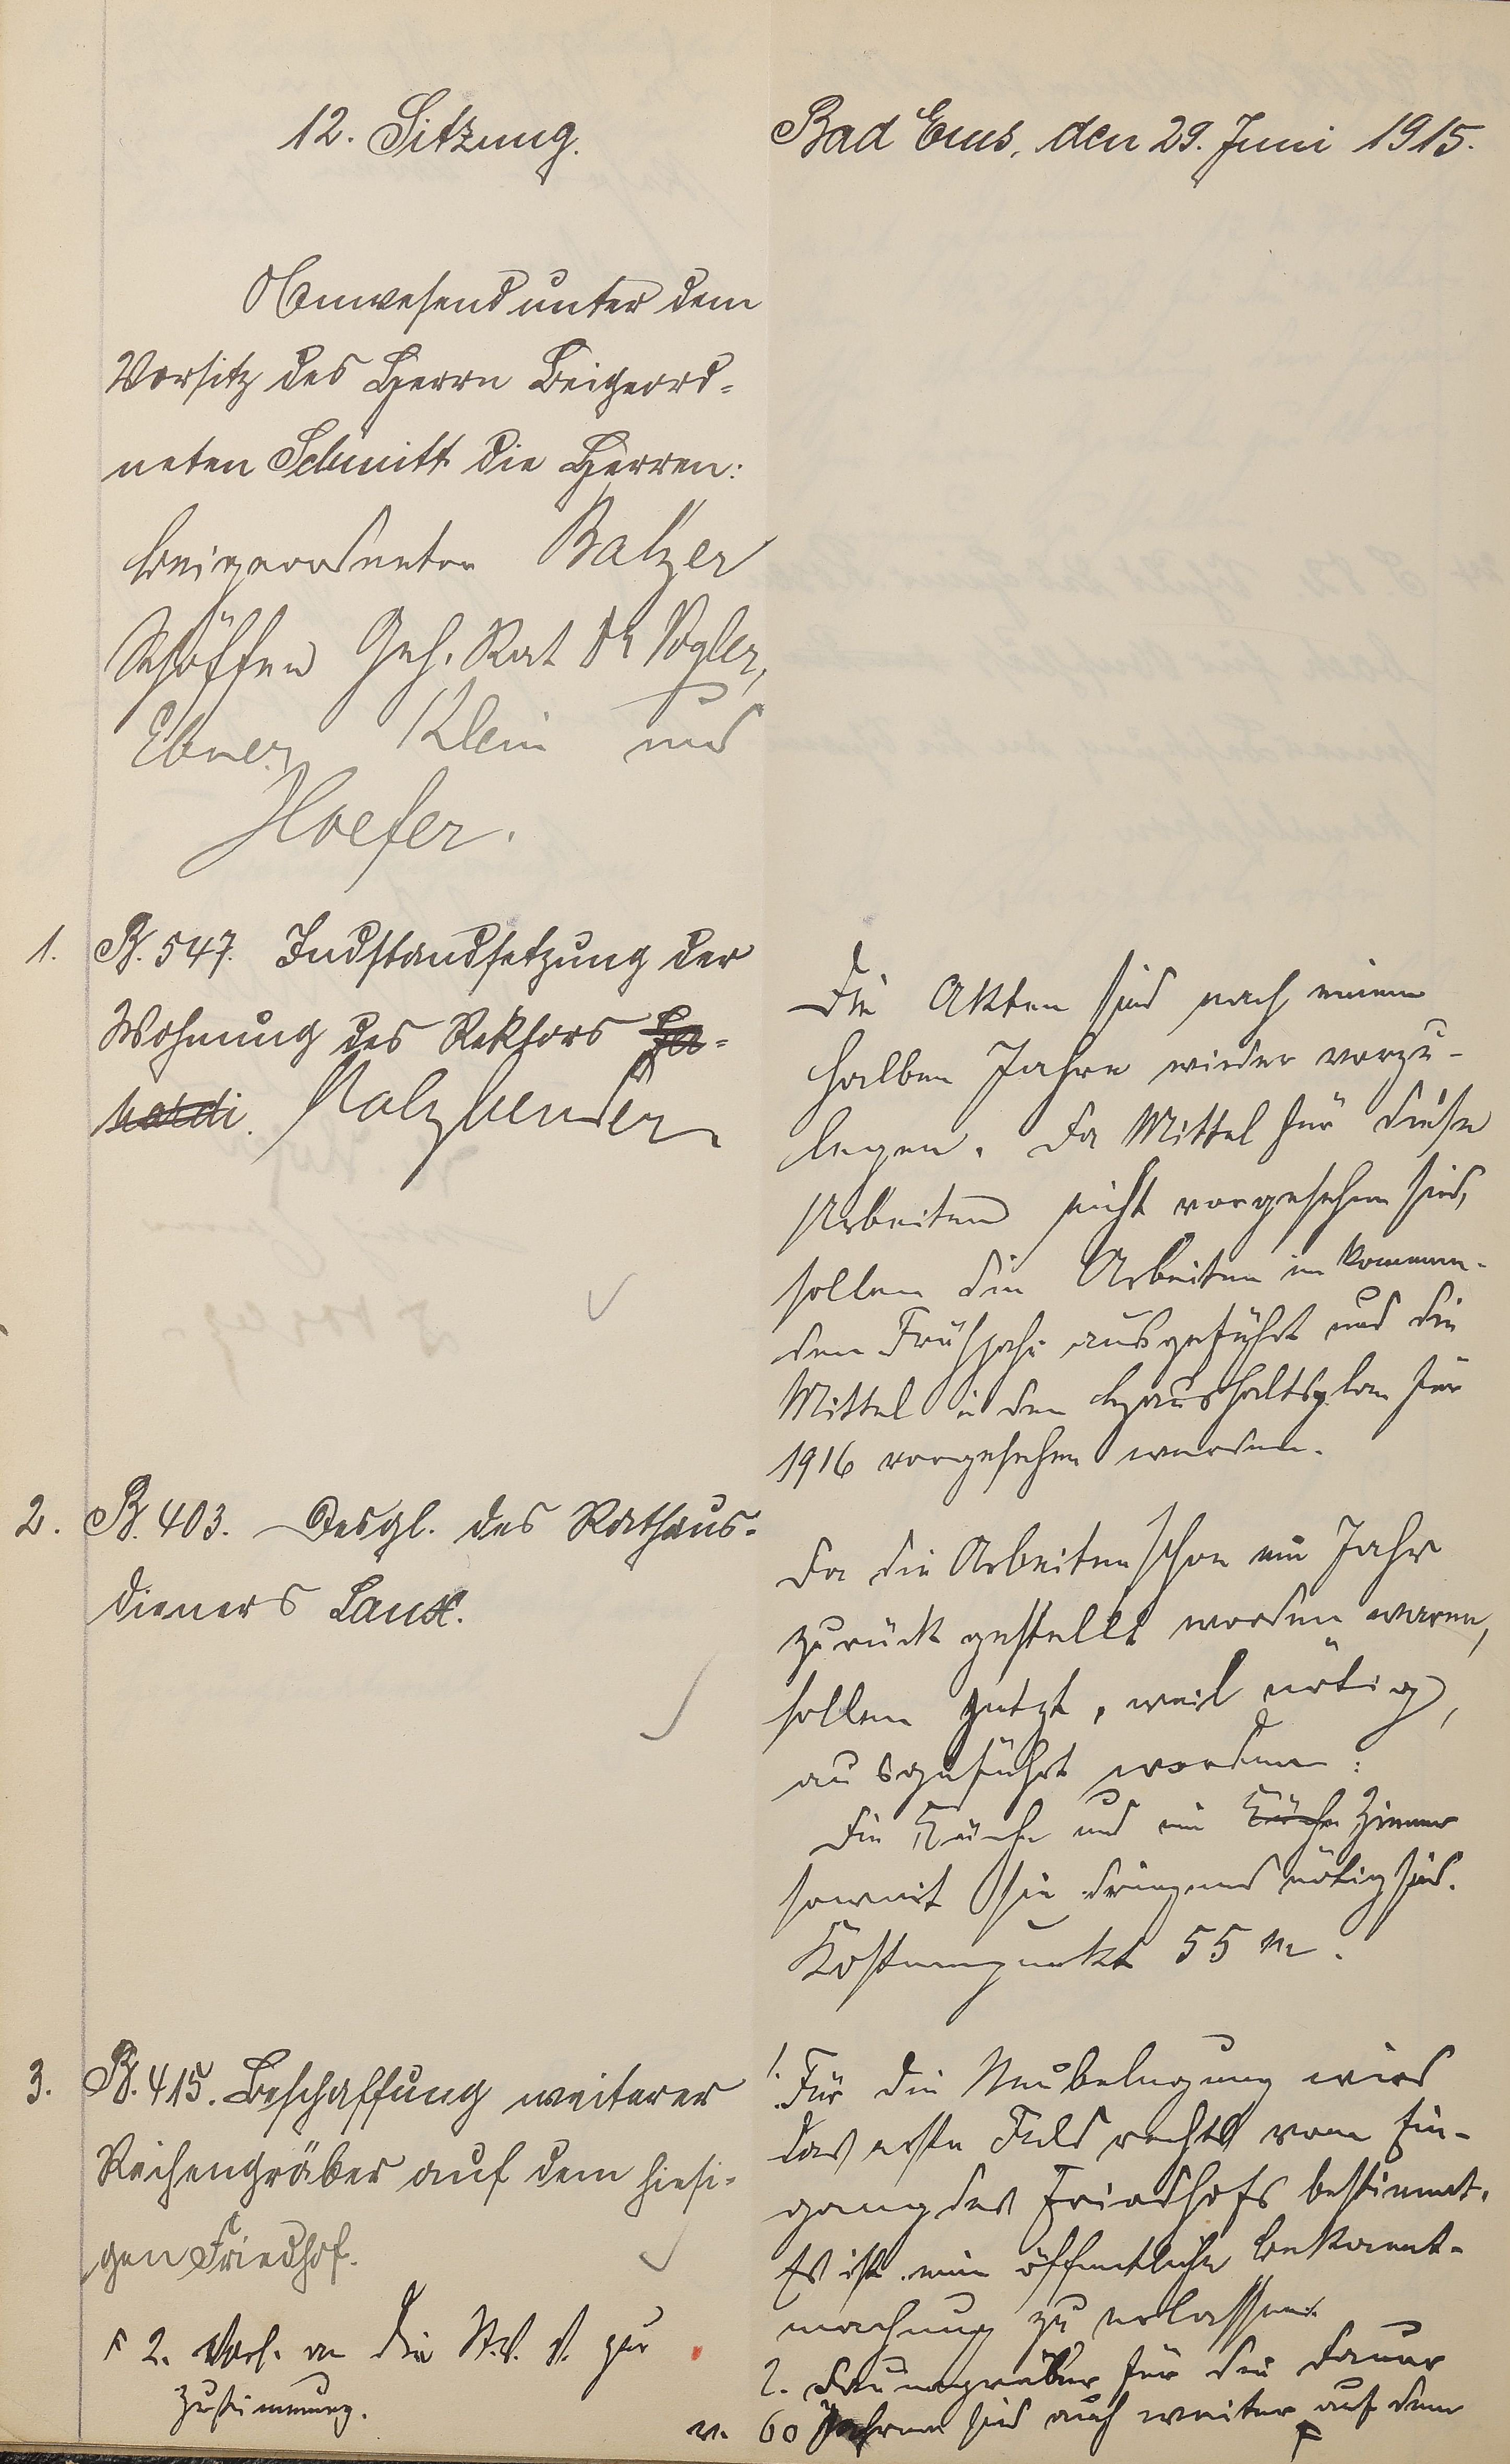 12. Sitzung.
Bad Ems, den 29. Juni 1915.
Anwesend unter dem
Vorsitz des Herrn Beigeord-
neten Schmitt die Herren:
Beigeordneter Balzer
Schöffen Geh. Rat Dr Vogler,
Ebner, Klein und
Hoefer.
1. B. 547. Indstandsetzung der
Wohnung des Rektors
Malzbender
Die Akten sind nach einem
halben Jahre wieder vorzu-
legen. Da Mittel für diese
Arbeiten nicht vorgesehen sind,
sollen die Arbeiten im kommen-
den Frühjahr ausgeführt und die
Mittel in den Haushaltsplan für
1916 vorgesehen werden.
2. B. 403. Desgl. des Rathaus-
dieners Laux.
Da die Arbeiten schon ein Jahr
zurück gestellt worden waren,
sollen jetzt, weil nötig,
ausgeführt werden:
Die Küche und ein Küche Zimmer
soweit sie dringend nötig sind.
Kostenpunkt 55 M.
3. B. 415. Beschaffung weiterer
Reihengräber auf dem hiesi-
gen Friedhof.
2. Vorl. an die St. V. V. zur
Zustimmung.
1. Für die Neubelegung wird
das erste Feld rechts vom Ein-
gang des Friedhofs bestimmt.
Es ist eine öffentliche Bekannt-
machung zu erlassen.
2. für die Dauer
v. 60 Jahren sind auch weiter auf dem